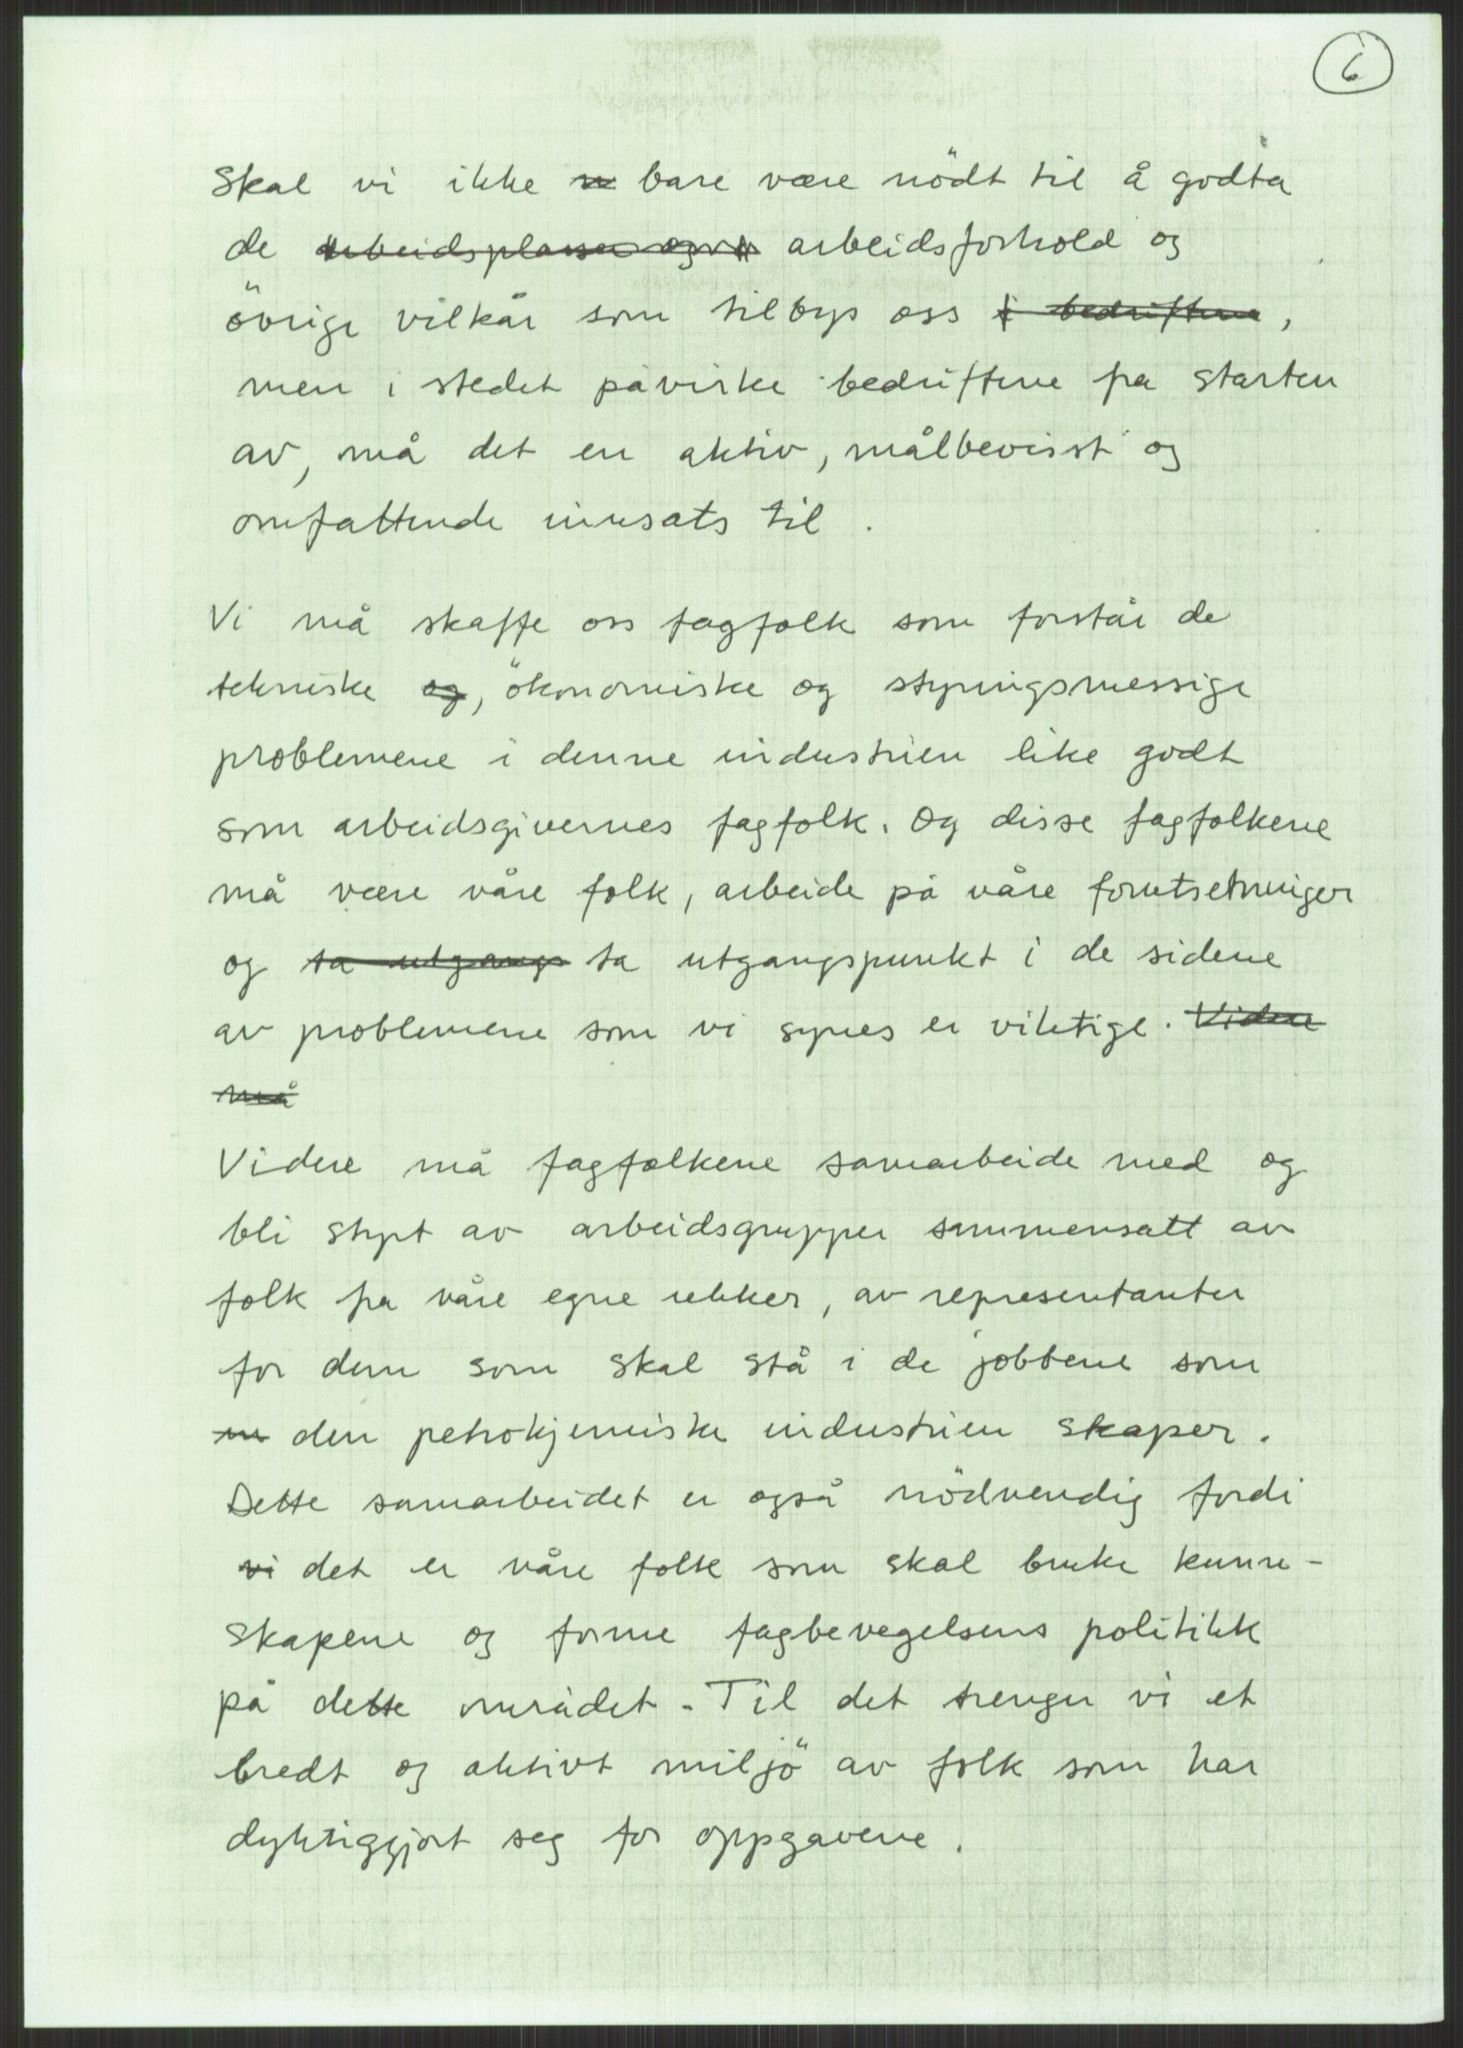 6
Skal vi ikke bare være nödt til å godta
de arbeidsplasser og arbeidsforhold og
övrige vilkår som tilbys oss i bedriftene,
men i stedet påvirke bedriftene fra starten
av, må det en aktiv, målbevisst og
omfattende innsats til.
Vi må skaffe oss fagfolk som forstår de
tekniske og, ökonomiske og styringsmessige
problemene i denne industrien like godt
som arbeidsgivernes fagfolk. Og disse fagfolkene
må være våre folk, arbeide på våre forutsetninger
og ta utgangs ta utgangspunkt i de sidene
av problemene som vi synes er viktige. Videre
må
Videre må fagfolkene samarbeide med og
bli støpt av arbeidsgrupper sammensatt av
folk fra våre egne rekker, av representanter
for dem som skal stå i de jobbene som
den petrokjemiske industrien skaper.
Dette samarbeidet er også nödvendig fordi
vi det er våre folk som skal bruke kunn-
skapene og forme fagbevegelsens politikk
på dette området. Til det trenger vi et
bredt og aktivt miljö av folk som har
dyktiggjort seg for oppgavene.